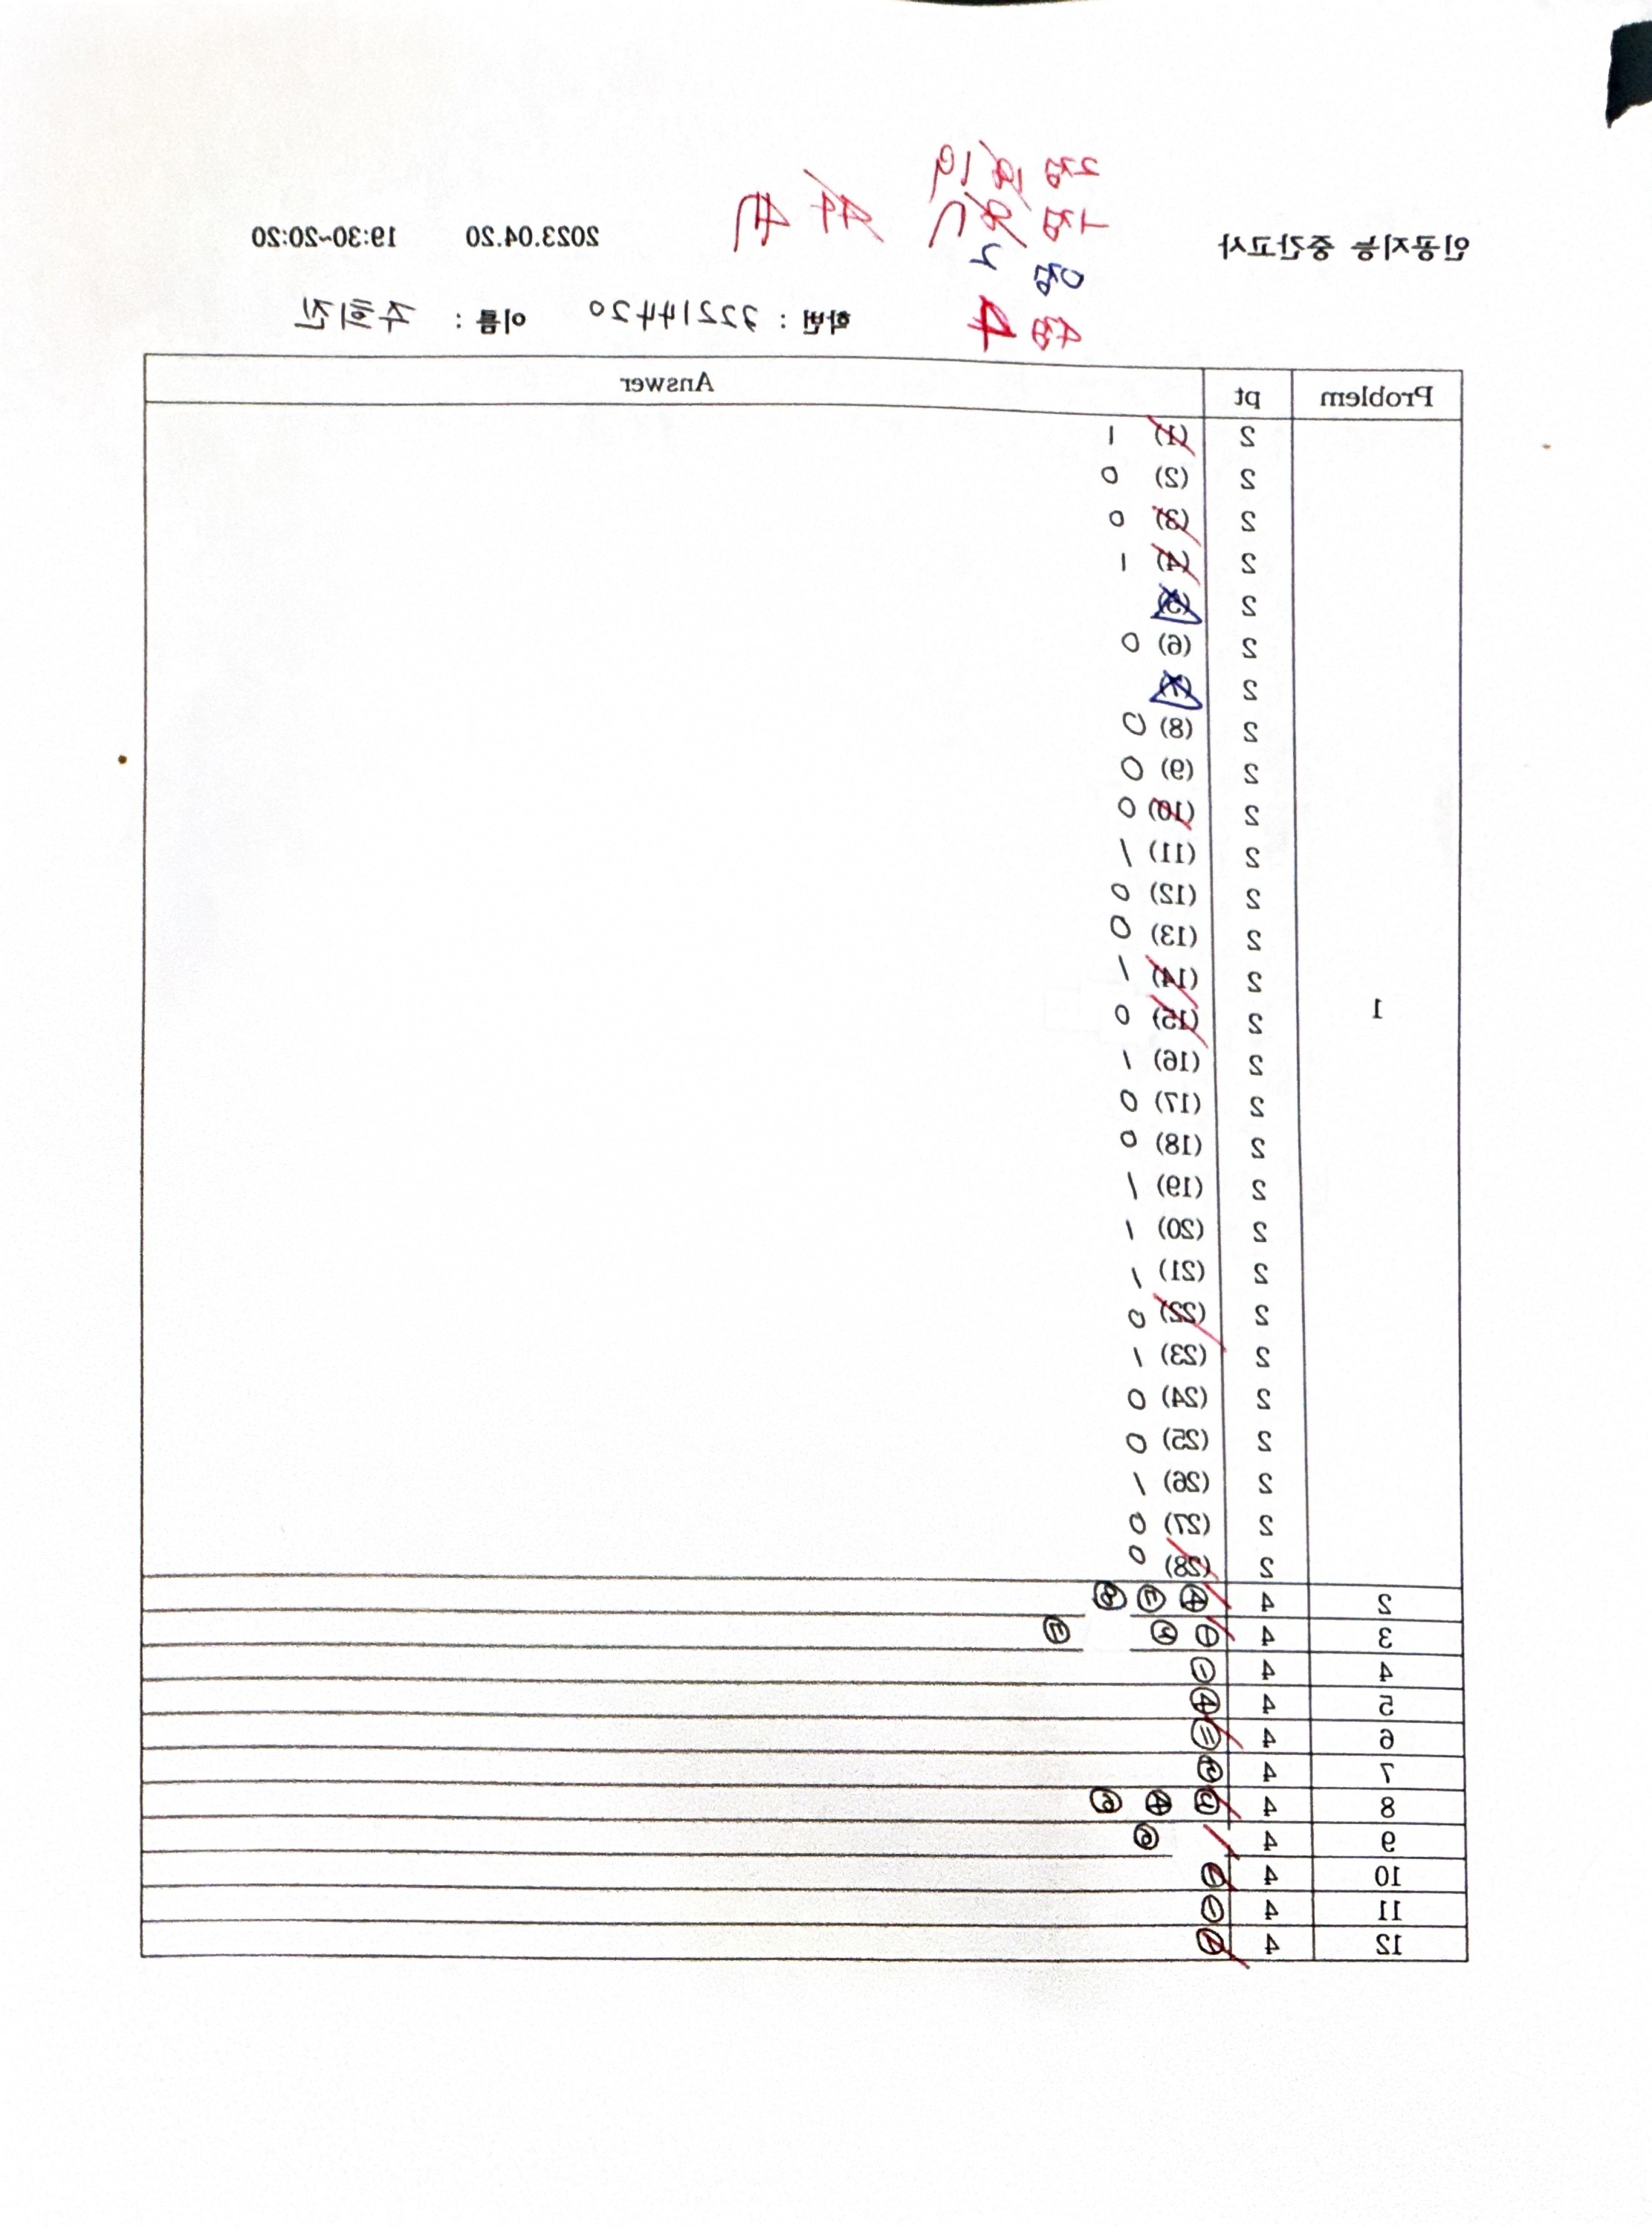 인공지능 중간고사 2023.04.20 19:30~20:20
2점 19
1점 7
0점 2
4점 4
학번 : 32214420 이름 : 주희진
Problem pt Answer
1
2 (1) 1
2 (2) 0
2 (3) 0
2 (4) 1
2 (5)
2 (6) 0
2 (7)
2 (8) 0
2 (9) 0
2 (10) 0
2 (11) 1
2 (12) 0
2 (13) 0
2 (14) 1
2 (15) 0
2 (16) 1
2 (17) 0
2 (18) 0
2 (19) 1
2 (20) 1
2 (21) 1
2 (22) 0
2 (23) 1
2 (24) 0
2 (25) 0
2 (26) 1
2 (27) 0
2 (28) 0
2 4 ④
3 4 ①
4 4 ①
5 4 ④
6 4
7 4 ②
8 4 ④
9 4
10 4
11 4 ①
12 4